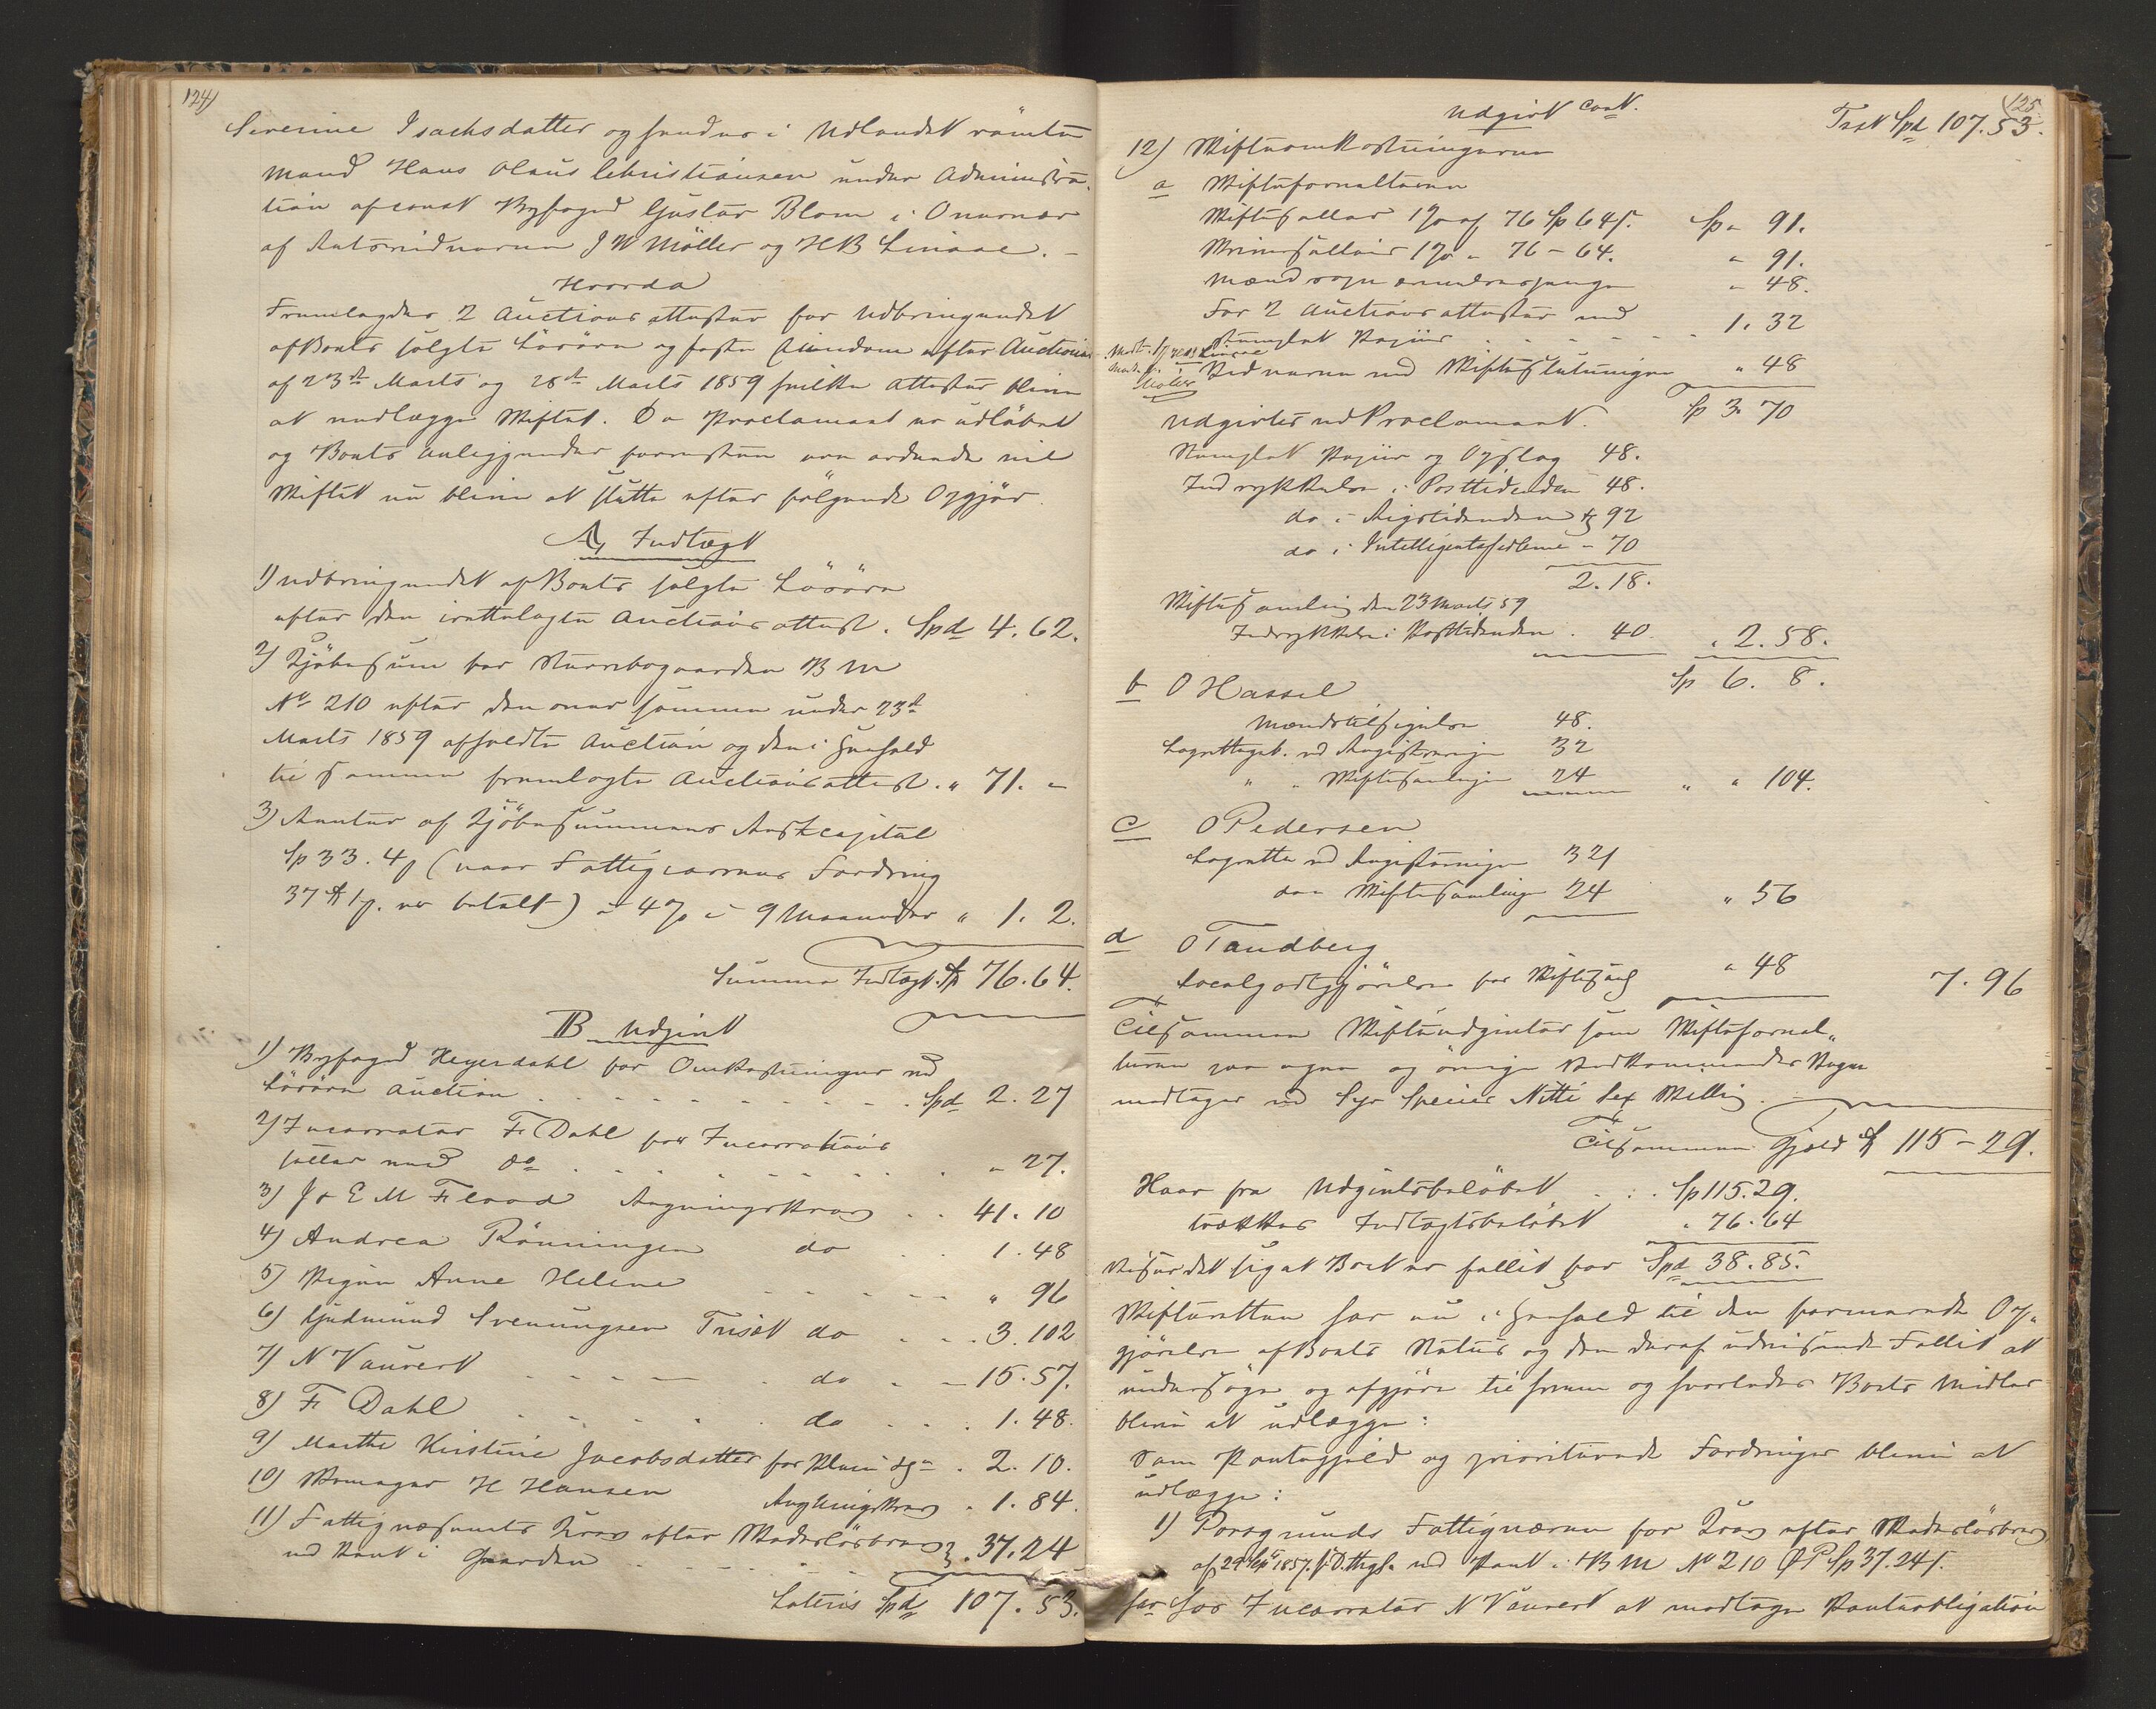 124)
Severine Isachsdatter og hendes i Udlandet rømte
Mand Hans Olaus Christiansen under Administra-
tion af const Byfoged Gustav Blom i Overvær
af Retsvidnerne J W Møller og HB Linaae. -
Hvorda
Fremlagdes 2 Auctions attester for Udbringendet
af Boets solgte Løsøre og faste Eiendom efter Auctioner
af 23de Marts og 28de Marts 1859 hvilke Attester blive
at vedlægge Skiftet. Da Proclamaet er udløbet
og Boets Anliggender forresten ere ordnede vil
Skiftet nu blive at slutte efter følgende Opgjør.
A, Indtægt
1) Udbringendet af Boets solgte Løsøre
efter den irettelagte Auctions attest . Spd 4. 62.
2) Kjøbesum for Steenebogaarden B M
No 210 efter den over samme under 23de
Marts 1859 afholdte Auction og den i Henhold
til samme fremlagte Auctionsattest . " 71. "
3) Renter af Kjøbesummens Restcapital
Sp 33. 4 β (naar Fattigvæsenets Fordring
37 Sp er betalt) a 4 % i 9 Maaneder " 1. 2.
Summa Indtægt Sp 76. 64.
B Udgivt
1) Byfoged Heyerdahl for Omkostninger ved
Løsøre Auction . . . . Spd 2. 27
2) Incassator F. Dahl for Incassations
sallar ved do . . . . " 27.
3) J & E M Flood Regningskrav . . 41. 10
4) Andrea Rønningen do . . 1. 48
5) Pigen Anne Helene - - - - " 96
6) Gudmund Svenungsen Trisæt do . . . 3. 102
7) N Vauvert - - - - do . - 15. 57.
8) F Dahl . . . . do . . . 1. 48.
9) Marthe Kirstine Jacobsdatter for Pleie &c . 2. 10.
10) Skomager H Hansen Regningskrav . 1. 84.
11) Fattigvæsenets Krav efter Skadesløsbrev
med Pant i Gaarden . . . . } . 37. 24
Lateris Spd 107. 53.
125
Udgivt cont.
Trspt Spd 107. 53.
12) Skifteomkostningerne
a Skifteforvalteren
Skiftesallar 1 % af 76 Sp 64 β. Sp " 91.
Skriversallair 1 % " 76 - 64. " 91.
" 48.
For 2 Auctions attester med
stemplet Papiir . . . . . 1. 32
Vidnerne ved Skifteslutningen " 48
Sp 3. 70
Udgivter ved Proclamaet.
Stemplet Papiir og Opslag 48.
Indrykkelse i Posttidenden 48.
do i Rigstidenden β 92
do i Intelligentssedlerne - 70
2. 18.
Skiftesamling den 23 Marts 59
Indrykkelse i Posttidenden . 40. . 2. 58.
Sp 6. 8.
b O Hassel
Mændstilsigelse 48.
Lagrettesgeb. ved Registrering 32
" " Skiftesamlingen 24 " " 104.
c O Pedersen
Lagrette ved Registreringen 32 β
do " Skiftesamlingen 24 " 56
d O Tandberg
Localgodtgjørelse for Skiftesag " 48 7. 96
Tilsammen Skifteudgivter som Skifteforval-
teren paa egne og øvrige Vedkommendes Vegne
modtager med Syv Specier Nitti Sex Skilling.
Tilsammen Gjæld Sp 115 - 29.
Naar fra Udgivtsbeløbet . . . Sp 115. 29.
trækkes Indtægtsbeløbet " 76. 64
viser det sig at Boet er fallit for Spd 38. 85.
Skifteretten har nu i Henhold til den formerende Op-
gjørelse af Boets Status og den deraf udvisende Fallit at
undersøge og afgjøre til hvem og hvorledes Boets Midler
blive at udlægge:
Som Pantegjæld og prioriterede Fordringer blive at
udlægge:
1) Porsgrunds Fattigvæsen for Krav efter Skadesløsbrev
af 29 1857. med Pant i BM No 210 Sp 37. 24 β.
har Incassator N Vauvert at modtage Panteobligation